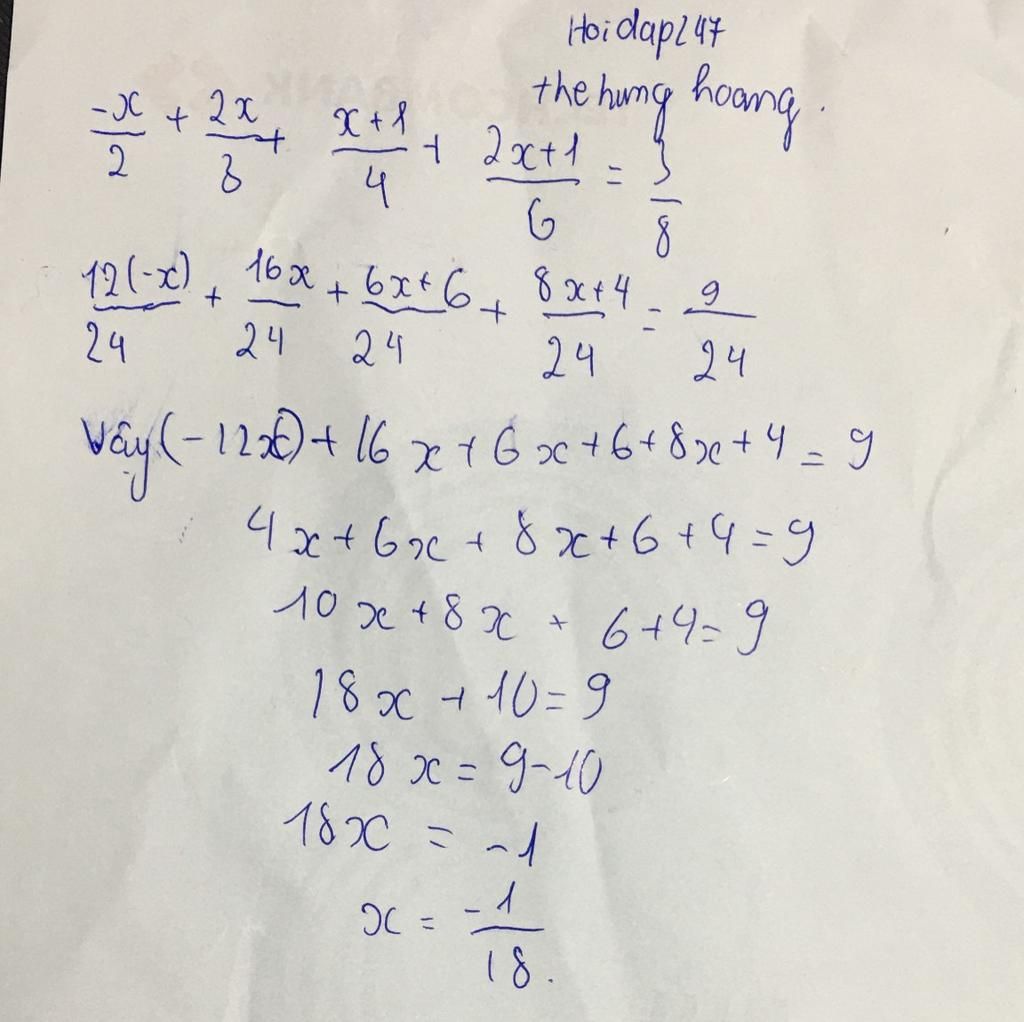 Hoidap247
the hung hoang.
-x/2 + 2x/3 + x+1/4 + 2x+1/6 = 3/8
12(-x)/24 + 16x/24 + 6x+6/24 + 8x+4/24 = 9/24
Vậy (-12x) + 16x + 6x + 6 + 8x + 4 = 9
4x + 6x + 8x + 6 + 4 = 9
10x + 8x + 6 + 4 = 9
18x + 10 = 9
18x = 9 - 10
18x = -1
x = -1/18.